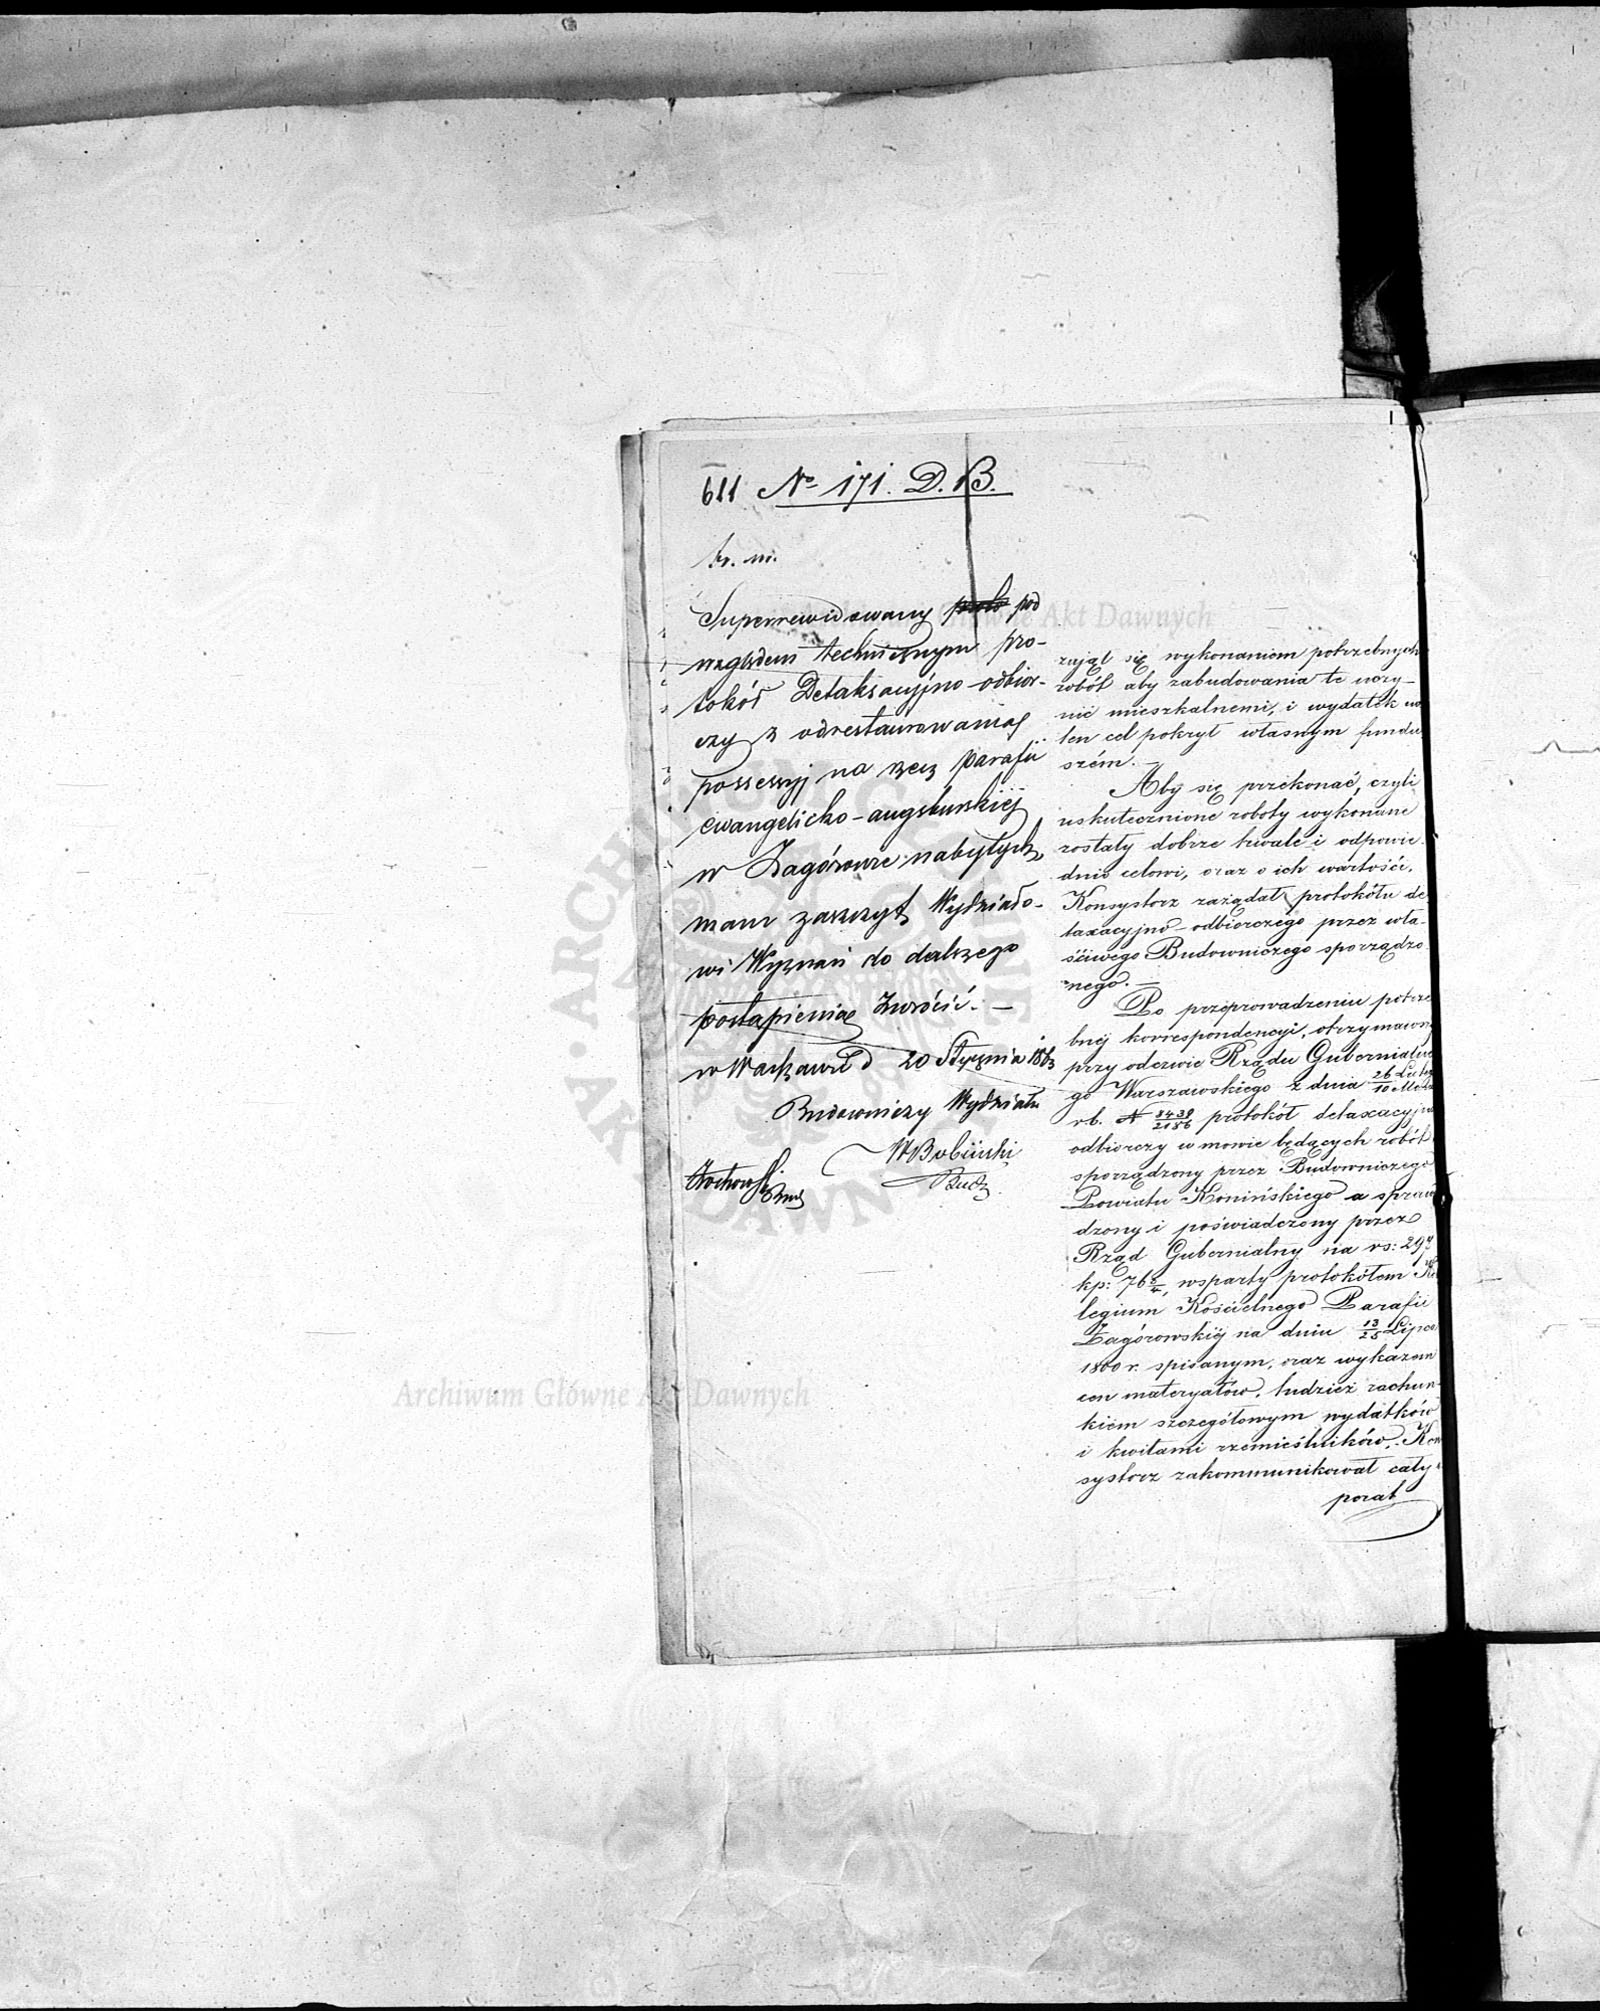 611 No 171. D. B.
br. m.
Superrewidowany pod
względem technicznym pro-
tokół Detaksacyjno-odbior-
czy z odrestaurowania
possessyj na rzecz Parafii
ewangelicko-augsburskiéj
w Zagórowie nabytych,
mam zaszczyt Wydziało-
wi Wyznań do dalszego
postąpienia zwrócić. —
w Warszawie d 20 Stycznia 1863
Budowniczy Wydziału
W Bobiński
Bud.
zajął się wykonaniem potrzebnych
robót aby zabudowania te uczy-
nić mieszkalnemi, i wydatek na
ten cel pokrył własnym fundu
szém. —
Aby się przekonać, czyli
uskutecznione roboty wykonane
zostały dobrze trwale i odpowie-
dnio celowi, oraz o ich wartości,
Konsystorz zażądał protokółu de
taxacyjno-odbiorczego przez wła-
ściwego Budowniczego sporządzo-
nego. —
Po przeprowadzeniu potrze
bnéj korrespondencyi, otrzymawszy
przy odezwie Rządu Gubernialne
go Warszawskiego z dnia 26 Lutego/10 Marca
rb. N 8438/2186 protokół detaxacyjno
odbiorczy w mowie będących robót
sporządzony przez Budowniczego
Powiatu Konińskiego a spraw
dzony i poświadczony przez
Rząd Gubernialny na rs: 29
kp: 76 3/4, wsparty protokółem Ko
legium Kościelnego Parafii
Zagórowskiéj na dniu 13/25 Lipca
1860 r. spisanym, oraz wykazem
cen materyałów, tudzież rachun-
kiem szczegółowym wydatków
i kwitami rzemieślników. Kon
systorz zakommunikował cały
porat
Archiwum Główne Akt Dawnych
Archiwum Główne Akt Dawnych